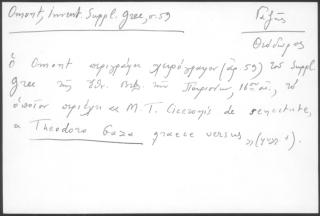 Omont, Invent. Suppl. Grec, σ. 59
Γαζῆς
Θεόδωρος
ὁ Omont περιγράφει χειρόγραφον (ἀρ. 59) τοῦ Suppl.
Grec τῆς Ἐθν. Βιβ. τῶν Παρισίων, 16ου αἰ., τὸ
ὁποῖον περιέχει «M. T. Ciceronis de senectute,
a Theodoro Gaza graece versus»